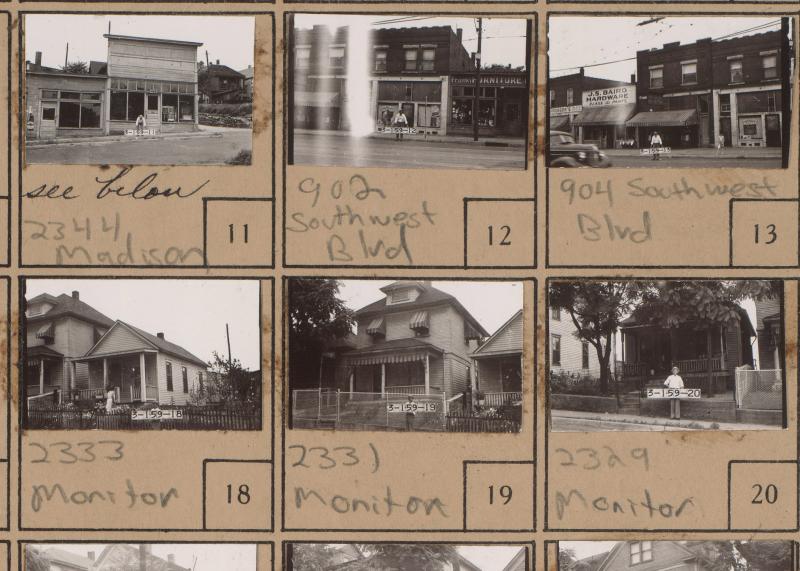 3-159-11
see below
2344
Madison
11
FURNITURE
3-159-12
902
Southwest
Blvd
12
J.S. BAIRD
HARDWARE
GLASS & PAINTS
3-159-13
904 Southwest
Blvd
13
3-159-18
2333
Monitor
18
3-159-19
2331
Moniton
19
3-159-20
2329
Monitor
20